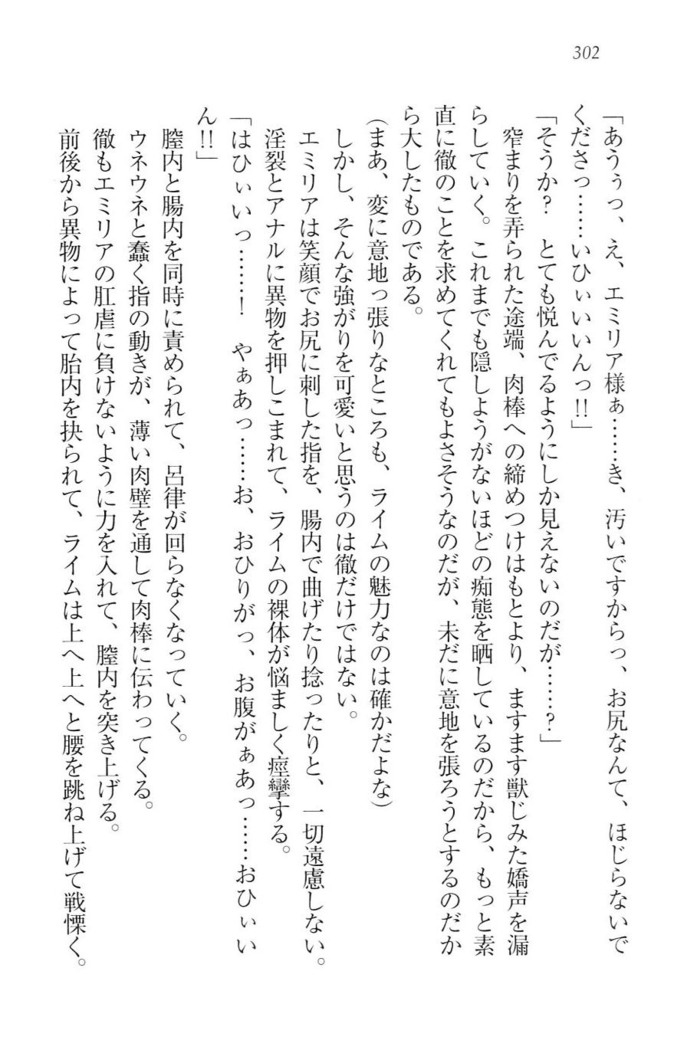 302
「あうぅっ、え、エミリア様ぁ……き、汚いですからっ、お尻なんて、ほじらないで
くださっ……いひぃいいんっ!!」
「そうか?　とても悦んでるようにしか見えないのだが……?」
窄まりを弄られた途端、肉棒への締めつけはもとより、ますます獣じみた嬌声を漏
らしていく。これまでも隠しようがないほどの痴態を晒しているのだから、もっと素
直に徹のことを求めてくれてもよさそうなのだが、未だに意地を張ろうとするのだか
ら大したものである。
(まあ、変に意地っ張りなところも、ライムの魅力なのは確かだよな)
しかし、そんな強がりを可愛いと思うのは徹だけではない。
エミリアは笑顔でお尻に刺した指を、腸内で曲げたり捻ったりと、一切遠慮しない。
淫裂とアナルに異物を押しこまれて、ライムの裸体が悩ましく痙攣する。
「はひぃいっ……!　やぁあっ……お、おひりがっ、お腹がぁあっ……おひぃい
ん!!」
膣内と腸内を同時に責められて、呂律が回らなくなっていく。
ウネウネと蠢く指の動きが、薄い肉壁を通して肉棒に伝わってくる。
徹もエミリアの肛虐に負けないように力を入れて、膣内を突き上げる。
前後から異物によって胎内を抉られて、ライムは上へ上へと腰を跳ね上げて戦慄く。